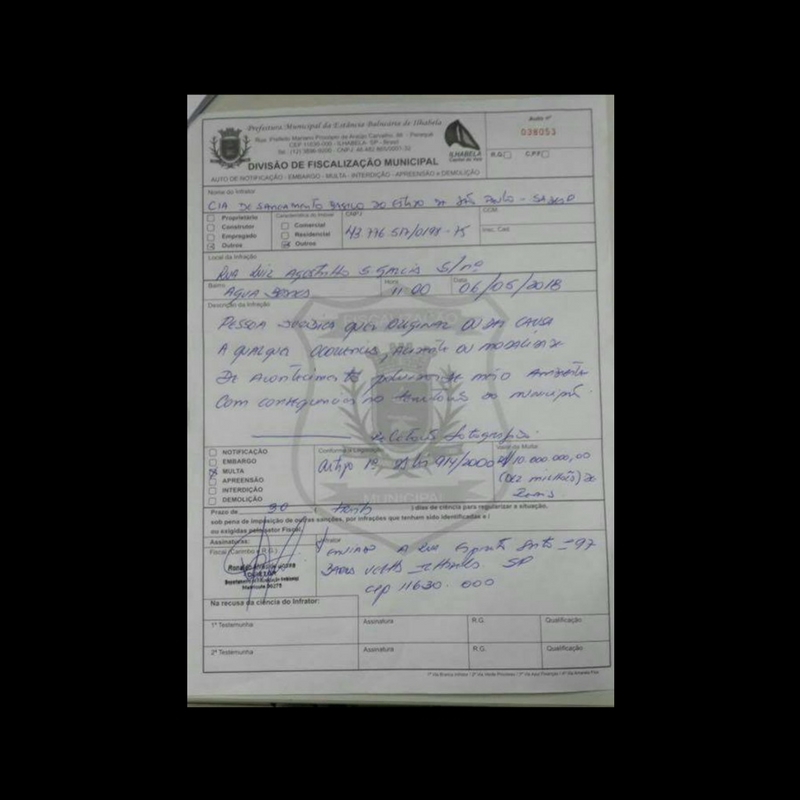 Prefeitura Municipal da Estância Balneária de Ilhabela
Rua Prefeito Mariano Procópio de Araújo Carvalho, 86 - Perequê
CEP 11630-000 - ILHABELA - SP - Brasil
DIVISÃO DE FISCALIZAÇÃO MUNICIPAL
AUTO DE NOTIFICAÇÃO - EMBARGO - MULTA - INTERDIÇÃO - APREENSÃO e DEMOLIÇÃO
ILHABELA
Capital da Vela
Auto nº
038053
R.G. C.P.F.
Nome do Infrator
CIA DE SANEAMENTO BASICO DO ESTADO DE SÃO PAULO - SABESP
Proprietário
Construtor
Empregado
Outros
Característica do Imóvel
Comercial
Residencial
Outros
CNPJ
43.776.517/0198-75
CCM.
Insc. Cad.
Local da Infração
RUA LUIZ AGOSTINHO S/nº
Bairro
AGUA BRANCA
Hora
11 00
Data
06/05/2018
Descrição da Infração
PESSOA JURIDICA QUE ORIGINAR OU DER CAUSA
A QUALQUER OCORRENCIA, ACIDENTE OU MODALIDADE
DE Acontecimento poluidor de meio Ambiente
Com consequencia no território do município.
relatório fotografico
FISCALIZAÇÃO
MUNICIPAL
NOTIFICAÇÃO
EMBARGO
MULTA
APREENSÃO
INTERDIÇÃO
DEMOLIÇÃO
Conforme Legislação
Artigo 1º da lei 914/2000
Valor da Multa:
R$ 10.000.000,00
(Dez milhões) de
Reais
Prazo de 30 (trinta) dias de ciência para regularizar a situação,
sob pena de imposição de outras sanções, por infrações que tenham sido identificadas e /
ou exigidas pelo setor Fiscal.
Assinaturas:
Fiscal (Carimbo e R.G.)
Infrator
ENVIAR A Rua Espirito Santo - 97
BARRA VELHA - Ilhabela SP
Cep 11630.000
Na recusa da ciência do Infrator:
1ª Testemunha Assinatura R.G. Qualificação
2ª Testemunha Assinatura R.G. Qualificação
1ª Via Branca Infrator / 2ª Via Verde Processo / 3ª Via Azul Finanças / 4ª Via Amarela Fixa